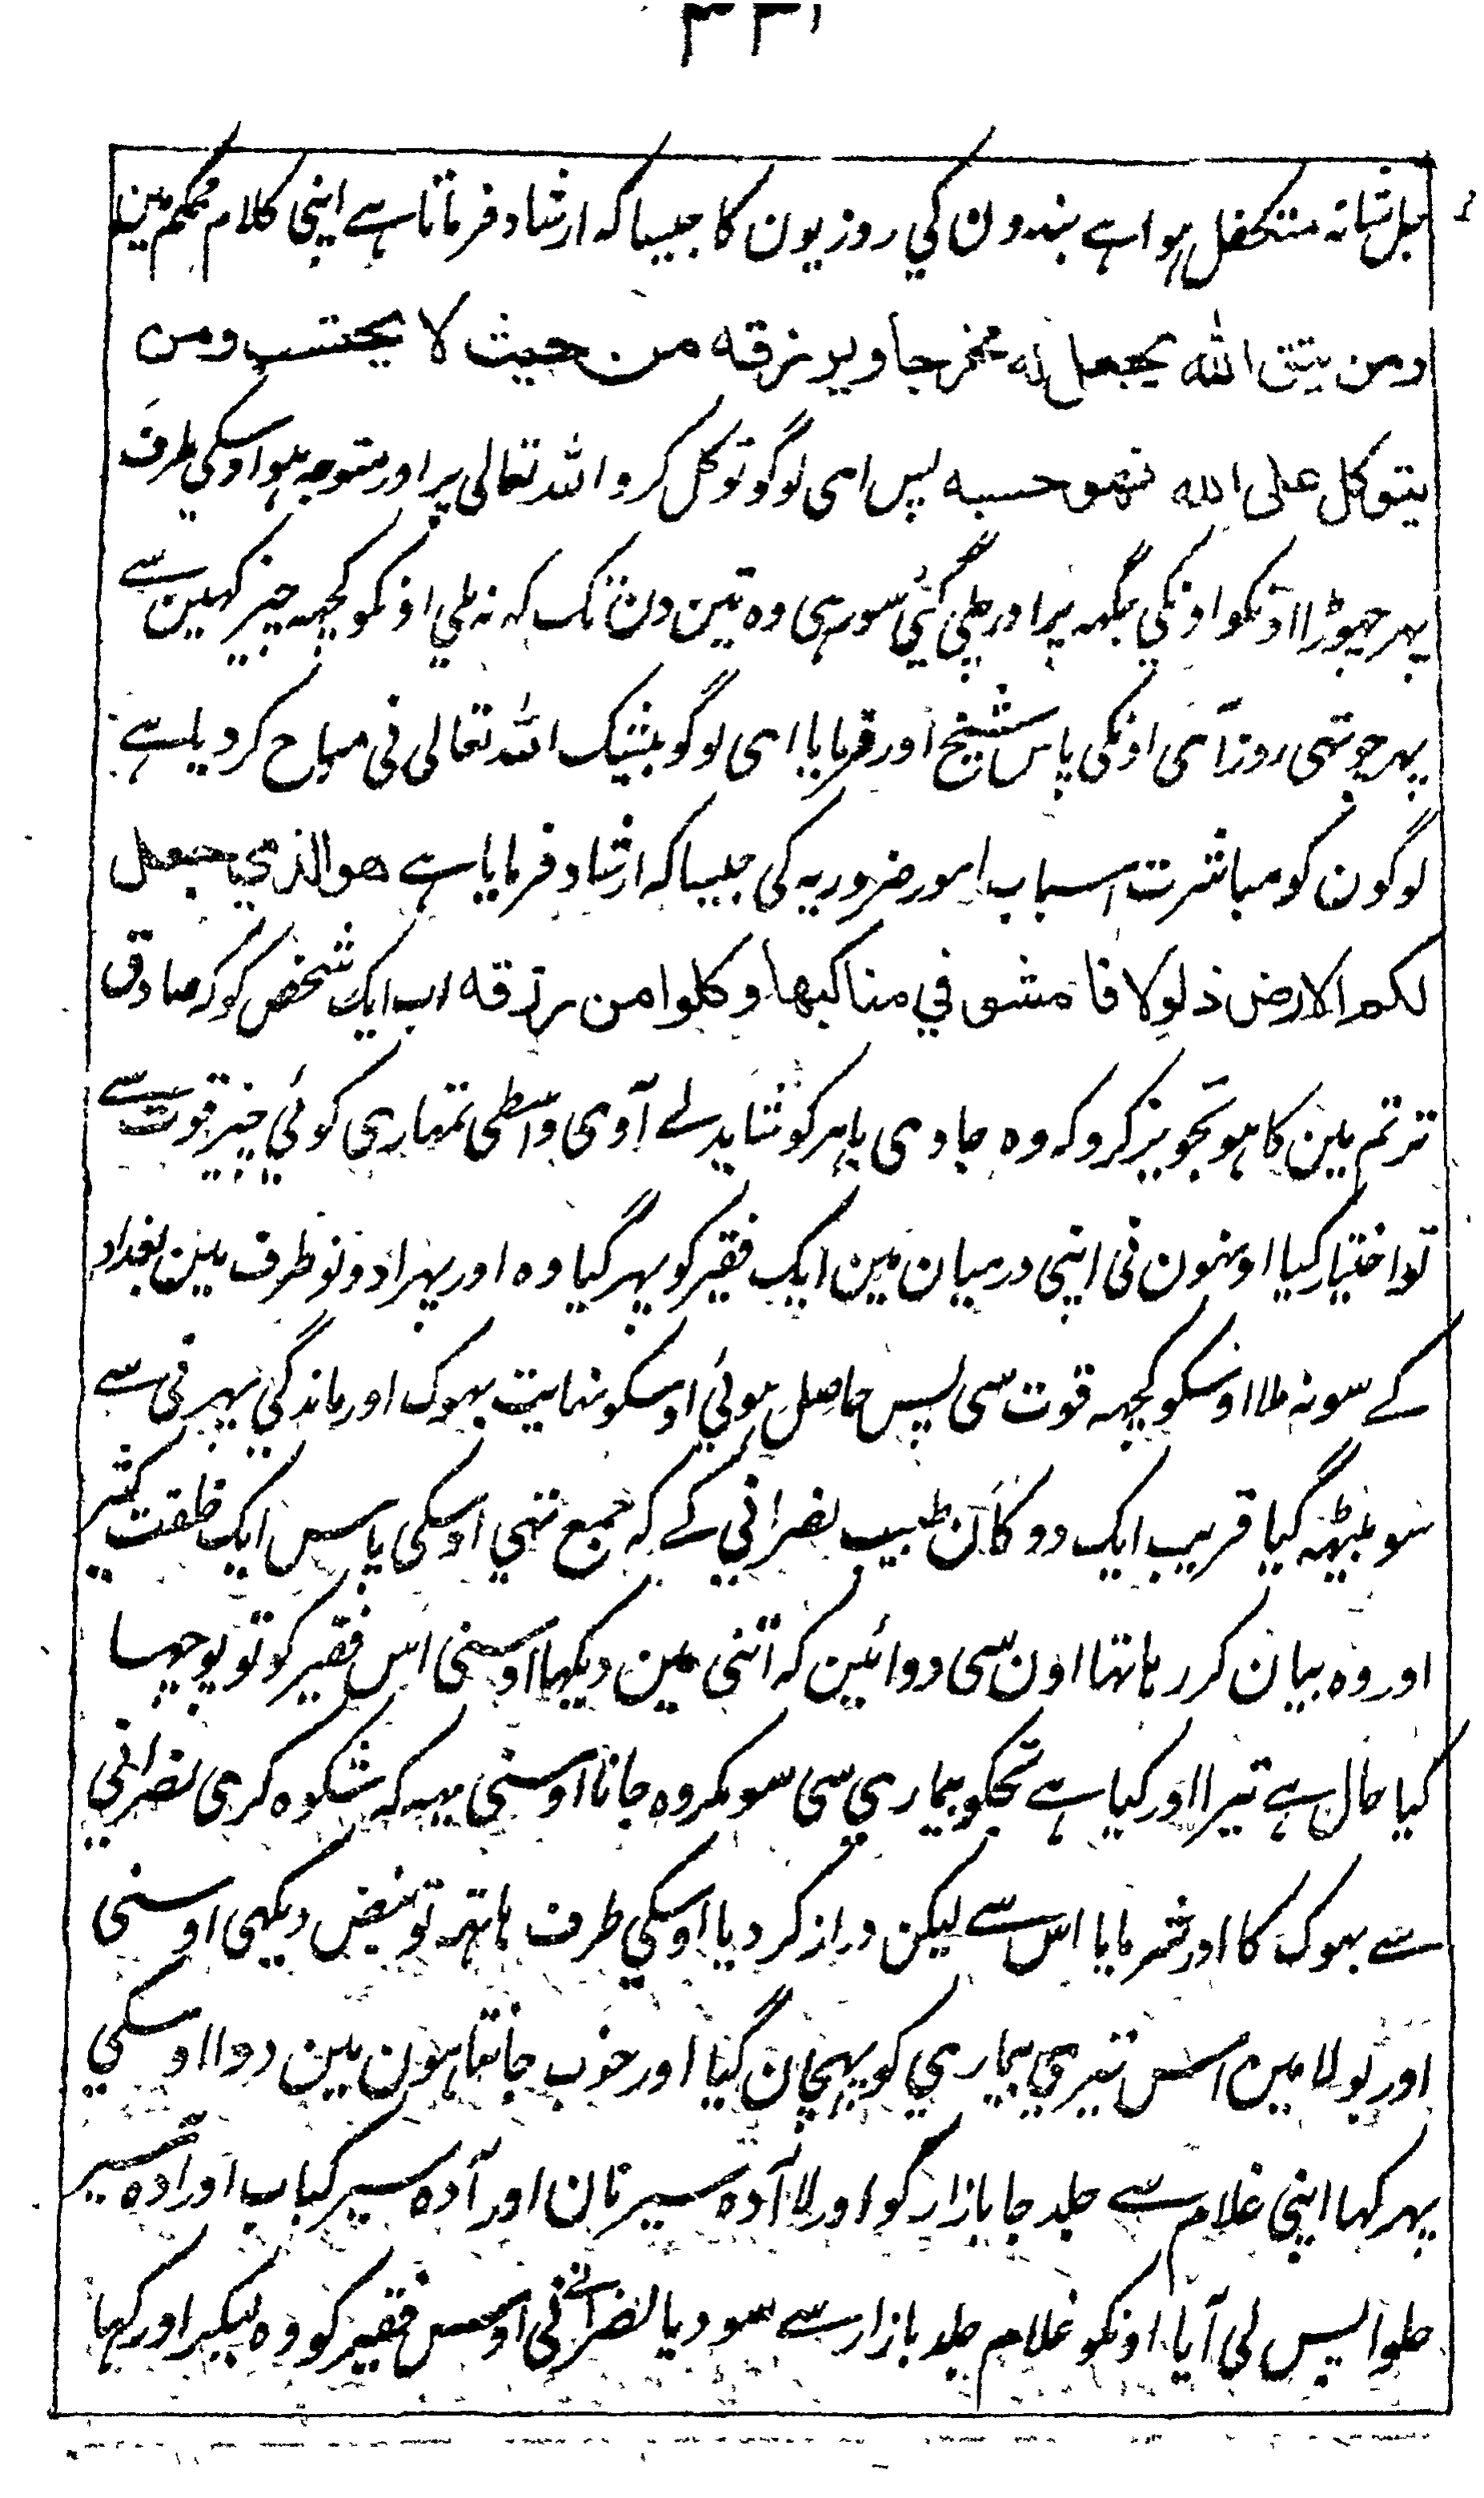 ۳۳۱
جل شانہ متکفل ہوا ہے بندون کی روزیون کا جیسا کہ ارشاد فرماتا ہے اپنی کلام محکم مین
ومن یتق الله یجعل له مخرجا ویرزقه من حیث لا یحتسب ومن
یتوکل علی الله فهو حسبه پس ای لوگو توکل کرو اللہ تعالی پر اور متوجہ ہو اوسکی طرف
پہر چھوڑا اونکو اونکی جگہہ پر اور چلی گئی سو رہی وہ تین دن تک کہ نہ ملی اونکو کچہہ چیز کہین سے
پہر چوتہی روز آئی اونکی پاس شیخ اور فرمایا ای لوگو بیشک اللہ تعالی نی مباح کر دیا ہے
لوگون کو مباشرت اسباب امور ضروریہ کی جیسا کہ ارشاد فرمایا ہے هو الذي جعل
لکم الارض ذلولا فامشو في مناکبها وکلوا من رزقه اب ایک شخص کو کہ صادق
تر تم مین کا ہو تجویز کرو کہ وہ جاوی باہر کو شاید لے آوی واسطی تمہاری کوئی چیز قوت سے
تو اختیار کیا اونہون نی اپنی درمیان مین ایک فقیر کو پہر گیا وہ اور پہرا دونو طرف مین بغداد
کے سو نہ ملا اوسکو کچہہ قوت سی پس حاصل ہوئی اوسکو نہایت بہوک اور ماندگی پہرنی سے
سو بیٹہہ گیا قریب ایک دوکان طبیب نصرانی کے کہ جمع تہی اوسکی پاس ایک خلقت کثیر
اور وہ بیان کر رہا تہا اون سی دوائین کہ اتنی مین دیکہا اوسنی اس فقیر کو تو پوچہا
کیا حال ہے تیرا اور کیا ہے تجکو بیماری سی سو مکروہ جانا اوسنی یہہ کہ شکوہ کری نصرانی
سے بہوک کا اور شرمایا اس سے لیکن دراز کر دیا اوسکی طرف ہاتہہ تو نبض دیکہی اوسنی
اور بولا مین اس تیری بیماری کو پہچان گیا اور خوب جانتا ہون مین دوا اوسکی
پہر کہا اپنی غلام سے جلد جا بازار کو اور لا آدہ سیر نان اور آدہ سیر کباب اور ادہ سیر
حلوا پس لی آیا اونکو غلام جلد بازار سے سو دیا نصرانی نی اوس فقیر کو وہ لیکر اور کہا